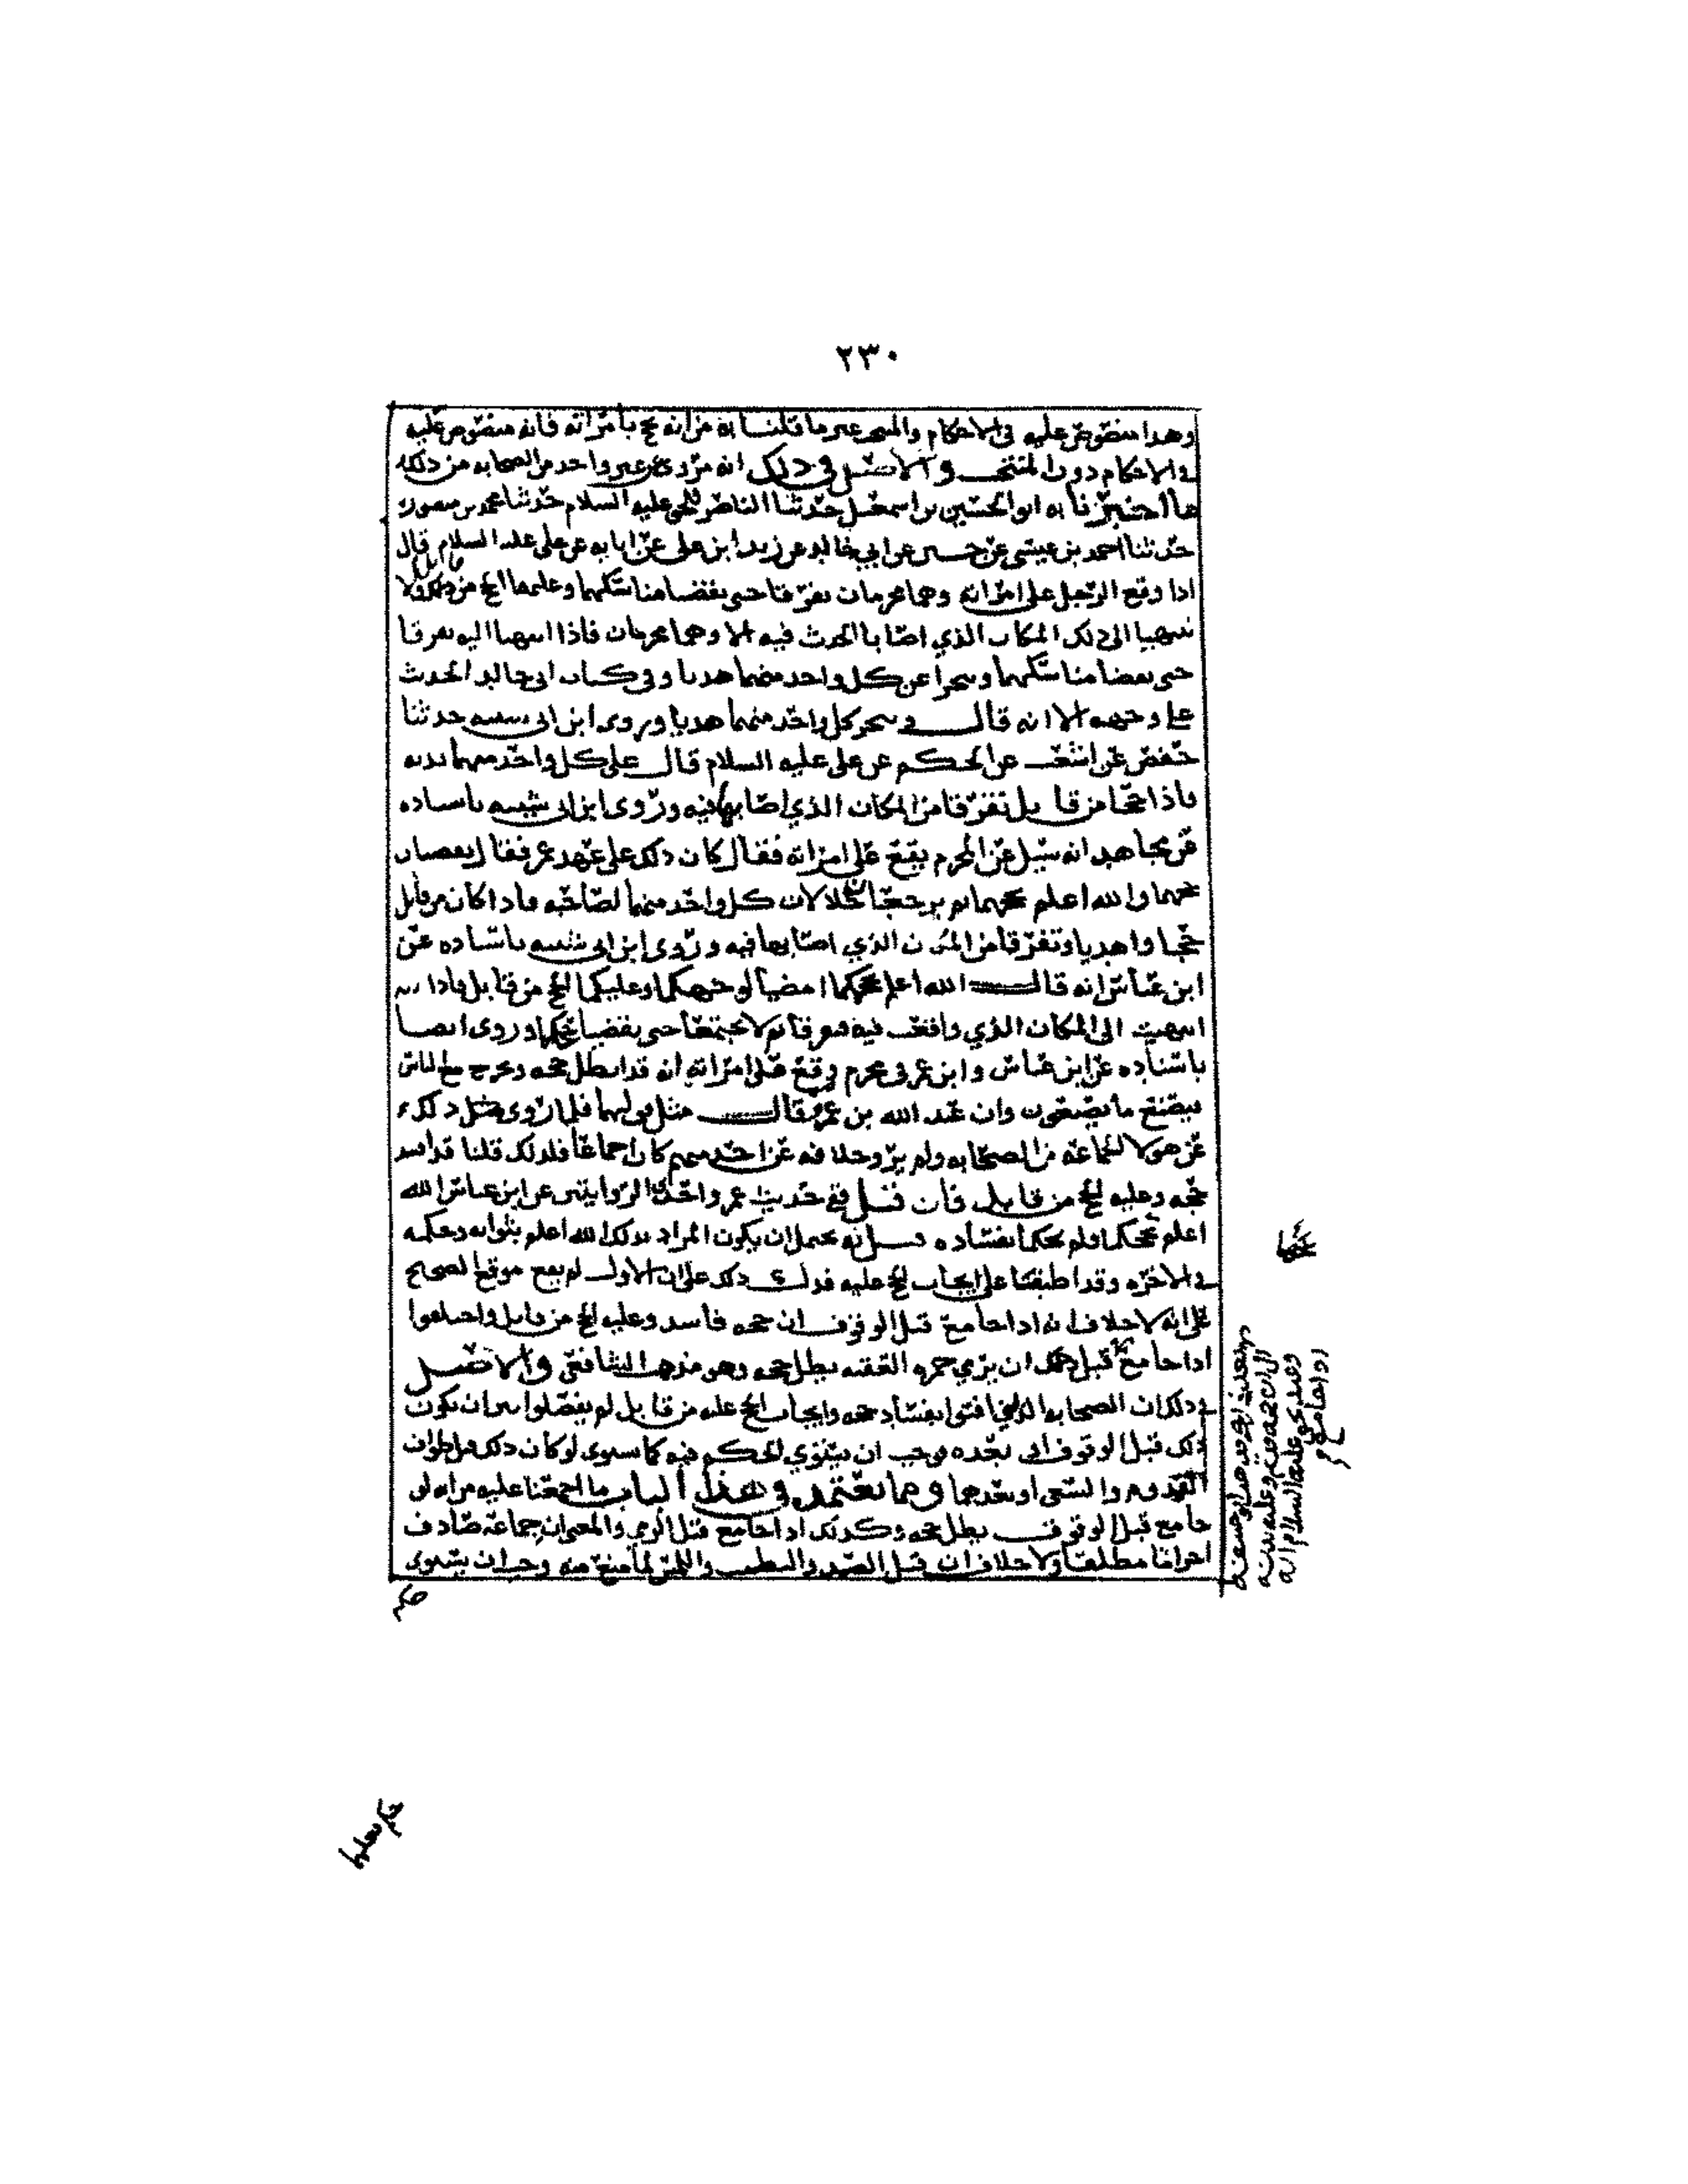 ٢٣٠
وهذا منصوص عليه في الاحكام والمنتخب غير ما قلنا به من انه يحج بامراته فانه منصوص عليه
في الاحكام دون المنتخب والاصل في ذلك انه مروي عن غير واحد من الصحابه من ذلك
ما اخبرنا به ابو الحسين بن اسمعيل حدثنا الناصر للحق عليه السلام حدثنا محمد بن منصور
حدثنا احمد بن عيسى عن حسين عن ابي خالد عن زيد ابن علي عن ابايه عن علي عليه السلام قال
اذا وقع الرجل على امراته وهما محرمان تفرقا حتى يقضيا مناسكهما وعليهما الحج من قابل ولا
ينتهيا الى ذلك المكان الذي اصابا الحدث فيه الا وهما محرمان فاذا انتهيا اليه تفرقا
حتى يقضيا مناسكهما وينحرا عن كل واحد منهما هديا وفي كتاب ابي خالد الحدث
على وجهه الا انه قال وينحر كل واحد منهما هديا وروى ابن ابي شيبه حدثنا
حفص عن اشعث عن الحكم عن علي عليه السلام قال على كل واحد منهما بدنه
فاذا حجا من قابل تفرقا من المكان الذي اصابها فيه وروى ابن ابي شيبه باسناده
عن مجاهد انه سيل عن المحرم يقع على امراته فقال كان ذلك على عهد عمر فقال يقضيان
حجهما والله اعلم بحجهما ثم يرجعان حلالان كل واحد منهما لصاحبه فاذا كان من قابل
حجا واهديا وتفرقا من المكان الذي اصابها فيه وروى ابن ابي شيبه باسناده عن
ابن عباس انه قال الله اعلم بحجكما امضيا لوجهكما وعليكما الحج من قابل فاذا
انتهيت الى المكان الذي واقعت فيه فتفرقا ثم لا تجتمعا حتى تقضيا حجكما وروى ايضا
باسناده عن ابن عباس وابن عمر في محرم وقع على امراته انه قد ابطل حجه ويخرج مع الناس
فيصنع ما يصنعون وان عبد الله بن عمرو قال مثل قوليهما فلما روي مثل ذلك
عن هولا الجماعة من الصحابه ولم يرو خلافه عن احد منهم كان اجماعا فلذلك قلنا قد افسد
حجه وعليه الحج من قابل فان قيل ففي حديث عمر واحدى الروايتين عن ابن عباس الله
اعلم بحجكما ولم يحكما بفساده قيل له يحتمل ان يكون المراد بذلك الله اعلم بثوابه وحكمه
في الاخره وقد اطبقا على ايجاب الحج عليه فدل ذلك على ان الاول لم يقع موقع الصحيح
على انه لا خلاف انه اذا جامع قبل الوقوف ان حجه فاسد وعليه الحج من قابل واختلفوا
اذا جامع قبل ان يرمي جمره العقبه يبطل حجه وهو مذهب الشافعي والاصل
في ذلك ان الصحابه الذين افتوا بفساد حجه وايجاب الحج عليه من قابل لم يفصلوا بين ان يكون
ذلك قبل الوقوف او بعده فوجب ان يستوي الحكم فيه كما يستوي لو كان ذلك قبل طواف
القدوم والسعي او بعدهما ومما يعتمد في هذا الباب ما اجمعنا عليه من انه لو
جامع قبل الوقوف يبطل حجه وكذلك اذا جامع قبل الرمي والمعنى ان جماعه صادف
احراما مطلقا ولا خلاف ان قتل الصيد والطيب واللبس لما منع منه وجب ان يستوي
ان حجه وعليه بدنه
عليه السلام انه
اذا جامع